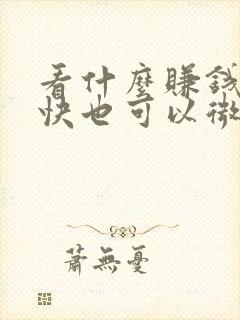 看什麼賺錢
快也可以微
蕭無憂